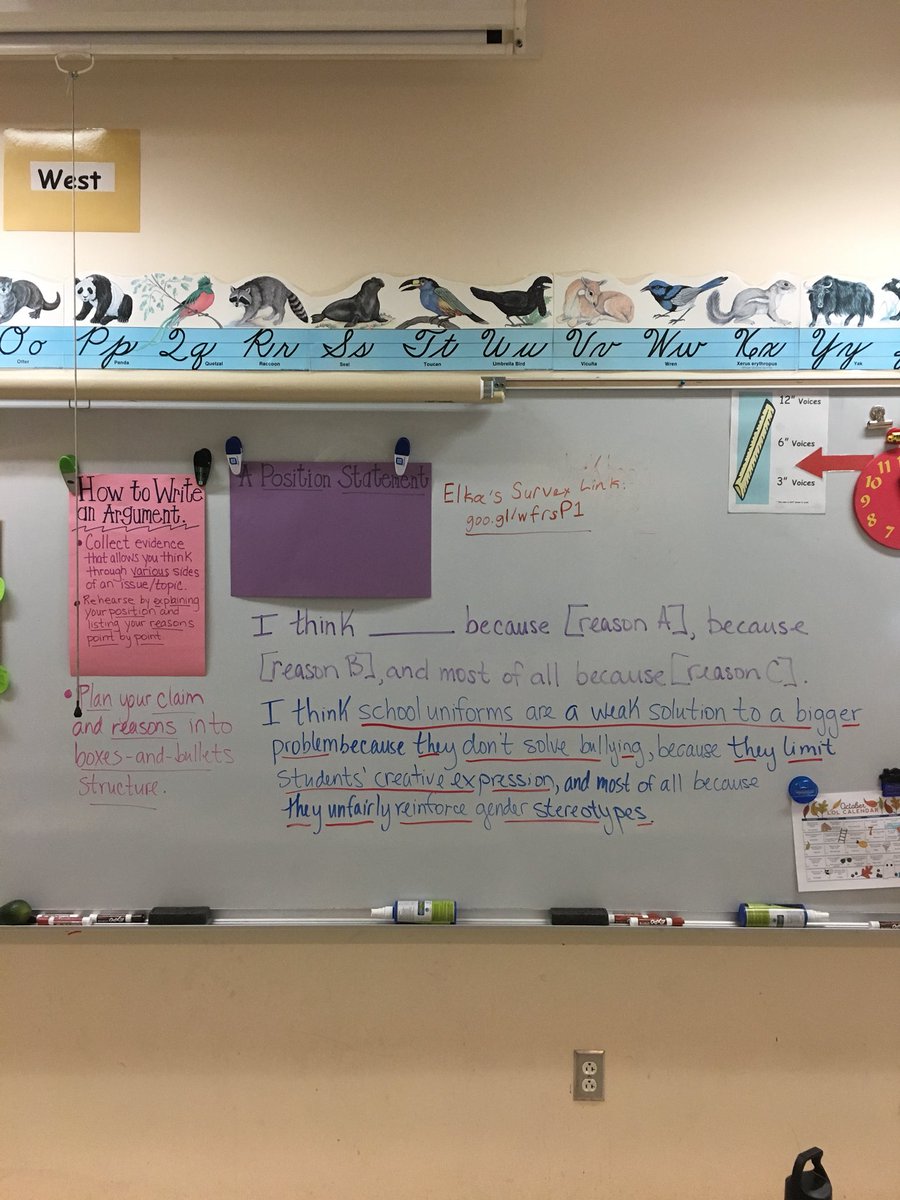 West
Oo Pp Qq Rr Ss Tt Uu Vv Ww Xx Yy
Otter Panda Quetzal Raccoon Seal Toucan Umbrella Bird Vicuña Wren Xerus erythropus Yak
12" Voices
6" Voices
3" Voices
11
10
9
8
7
How to Write
an Argument.
• Collect evidence
that allows you think
through various sides
of an issue/topic.
• Rehearse by explaining
your position and
listing your reasons
point by point
• Plan your claim
and reasons into
boxes-and-bullets
structure.
A Position Statement
Elka's Survey Link:
goo.gl/wfrsP1
I think ______ because [reason A], because
[reason B], and most of all because [reason C].
I think school uniforms are a weak solution to a bigger
problem because they don't solve bullying, because they limit
students' creative expression, and most of all because
they unfairly reinforce gender stereotypes.
October
LOL CALENDAR
EXPO
EXPO